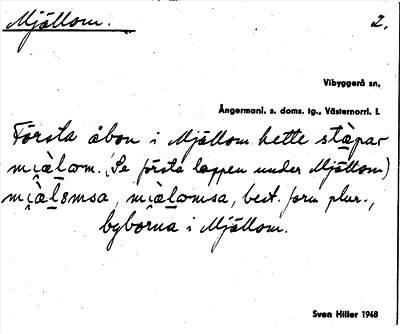 Mjällom. 2.
Vibyggerå sn,
Ångermanl. s. doms. tg., Västernorrl. l.
Första åbon i Mjällom hette stàpar
mi̯àlom. (Se första lappen under Mjällom)
mi̯àlsmsa, mi̯àlomsa, best. form plur.,
byborna i Mjällom.
Sven Hiller 1948